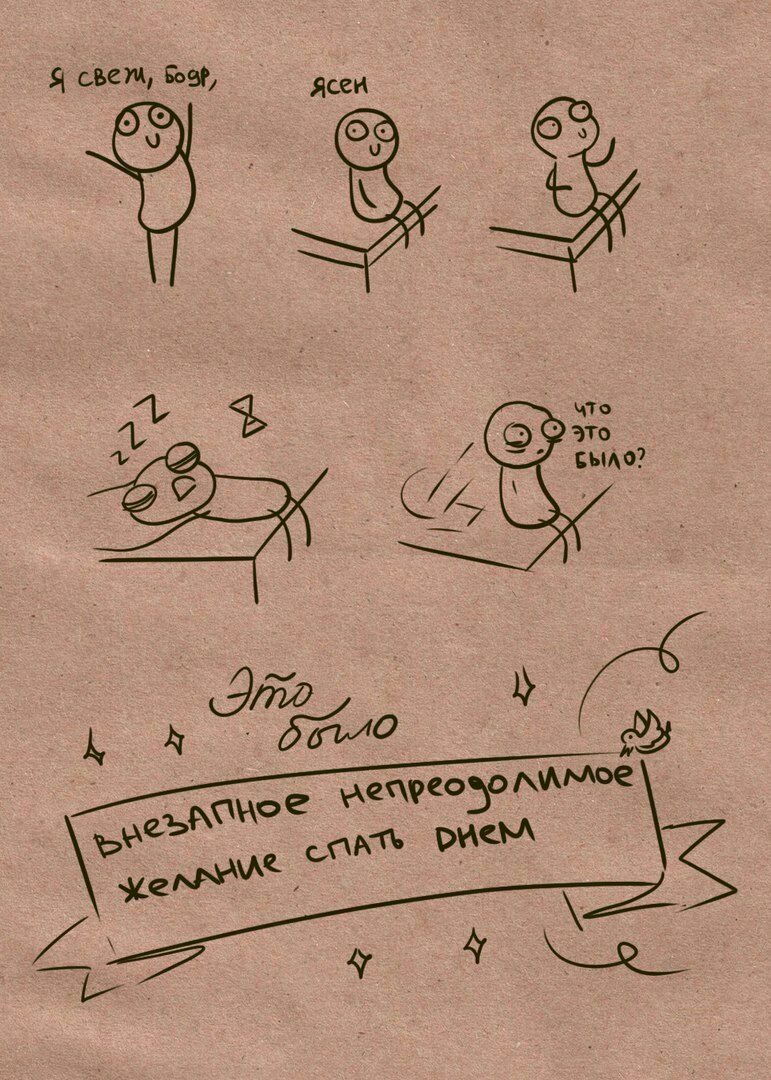 Я свеж, бодр,
ясен
zzz
что
это
было?
Это
было
внезапное непреодолимое
желание спать днем